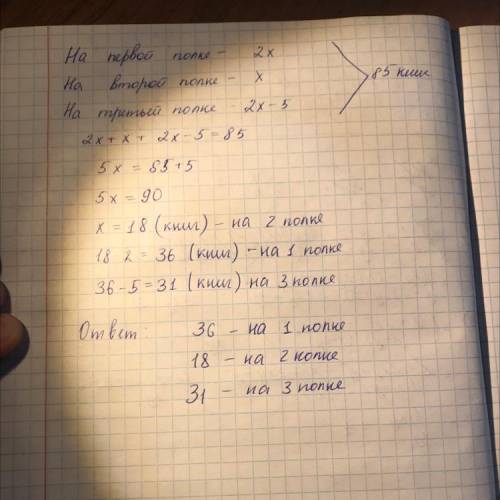 На первой полке - 2x
На второй полке - x
На третьей полке - 2x-5
85 книг
2x + x + 2x - 5 = 85
5x = 85 + 5
5x = 90
x = 18 (книг) - на 2 полке
18 2 = 36 (книг) - на 1 полке
36 - 5 = 31 (книг) на 3 полке
Ответ: 36 - на 1 полке
18 - на 2 полке
31 - на 3 полке